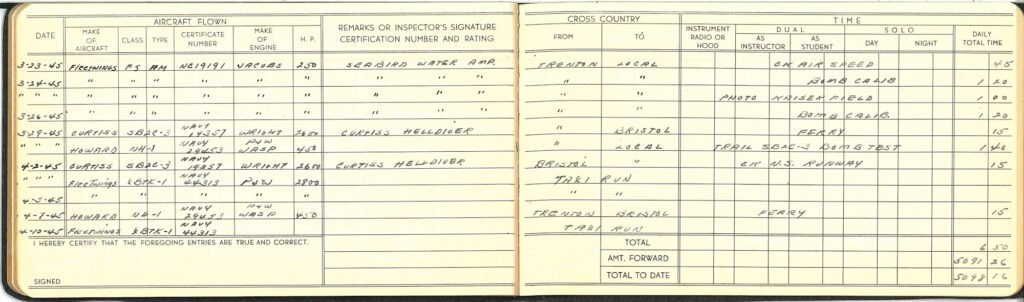 AIRCRAFT FLOWN
DATE MAKE OF AIRCRAFT CLASS TYPE CERTIFICATE NUMBER MAKE OF ENGINE H. P. REMARKS OR INSPECTOR'S SIGNATURE CERTIFICATION NUMBER AND RATING
3-23-45 FLEETWINGS F5 AM NC19191 JACOBS 250 SEABIRD WATER AMP.
3-24-45 " " " " " " " " "
" " " " " " " " " " " "
3-26-45 " " " " " " " " "
3-29-45 CURTISS SB2C-3 NAVY 19357 WRIGHT 2600 CURTISS HELLDIVER
" " " HOWARD NH-1 NAVY 29453 P&W WASP 450
4-2-45 CURTISS SB2C-3 NAVY 19357 WRIGHT 2600 CURTISS HELLDIVER
" " " FLEETWINGS XBTK-1 NAVY 44313 P&W 2800
4-5-45 " " " " "
4-9-45 HOWARD NH-1 NAVY 29453 P&W WASP 450
4-10-45 FLEETWINGS XBTK-1 NAVY 44313
I HEREBY CERTIFY THAT THE FOREGOING ENTRIES ARE TRUE AND CORRECT.
SIGNED
CROSS COUNTRY TIME
FROM TO INSTRUMENT RADIO OR HOOD DUAL SOLO DAILY TOTAL TIME
AS INSTRUCTOR AS STUDENT DAY NIGHT
TRENTON LOCAL CK AIR SPEED 45
" " BOMB CALIB 1 20
" " PHOTO KAISER FIELD 1 00
" " BOMB CALIB. 1 20
" BRISTOL FERRY 15
" LOCAL TRAIL SB2C-3 BOMB TEST 1 40
BRISTOL " CK N.S. RUNWAY 15
TAXI RUN
" "
TRENTON BRISTOL FERRY 15
TAXI RUN
TOTAL 6 50
AMT. FORWARD 5091 26
TOTAL TO DATE 5098 16